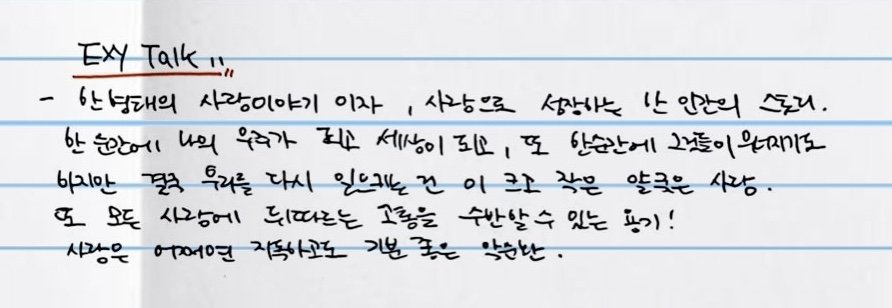 EXY Talk "
- 한 형태의 사랑이야기 이자, 사랑으로 성장하는 한 인간의 스토리.
한 순간에 나의 우주가 되고 세상이 되고, 또 한순간에 그것들이 무너지기도
하지만 결국 우리를 다시 일으키는 건 이 크고 작은 얄궂은 사랑.
또 모든 사랑에 뒤따르는 고통을 수반할 수 있는 용기!
사랑은 어쩌면 지독하고도 기분 좋은 악순환.